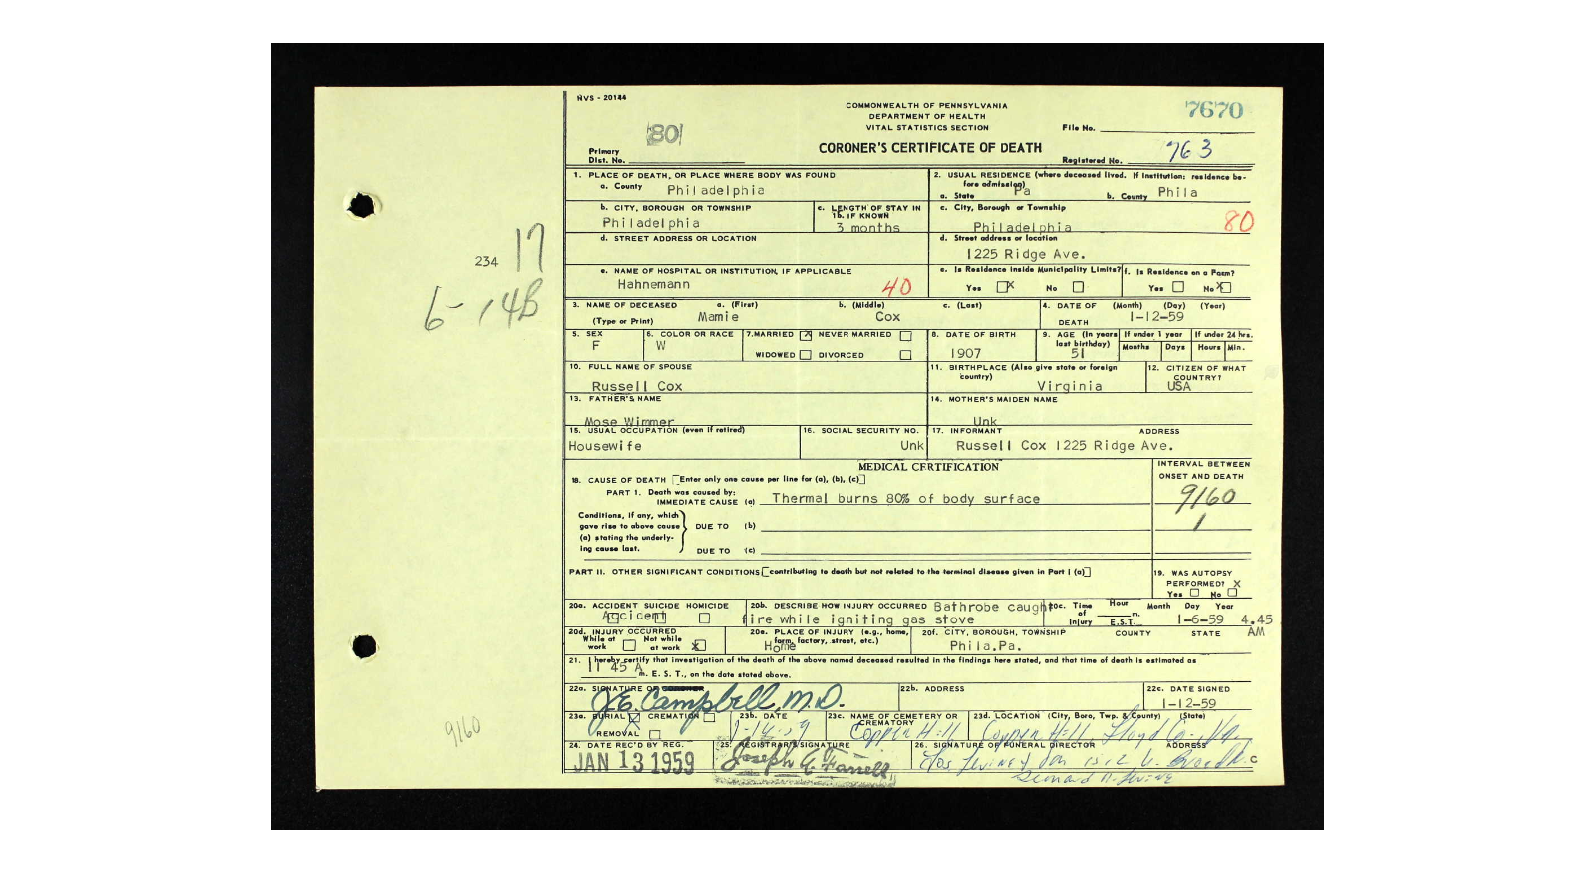 HVS - 20144
COMMONWEALTH OF PENNSYLVANIA
DEPARTMENT OF HEALTH
VITAL STATISTICS SECTION
7670
File No.
801
Primary
Dist. No.
CORONER'S CERTIFICATE OF DEATH
Registered No. 763
1. PLACE OF DEATH, OR PLACE WHERE BODY WAS FOUND
a. County Philadelphia
2. USUAL RESIDENCE (where deceased lived. If institution: residence be-
fore admission)
a. State Pa b. County Phila
b. CITY, BOROUGH OR TOWNSHIP
Philadelphia
c. LENGTH OF STAY IN
1b. IF KNOWN
3 months
c. City, Borough or Township
Philadelphia
80
d. STREET ADDRESS OR LOCATION
d. Street address or location
1225 Ridge Ave.
234 17
6-14B
e. NAME OF HOSPITAL OR INSTITUTION, IF APPLICABLE
Hahnemann
40
e. Is Residence Inside Municipality Limits?
Yes X No
f. Is Residence on a Farm?
Yes No X
3. NAME OF DECEASED a. (First) b. (Middle) c. (Last)
(Type or Print) Mamie Cox
4. DATE OF DEATH (Month) (Day) (Year)
1-12-59
5. SEX
F
6. COLOR OR RACE
W
7. MARRIED X NEVER MARRIED
WIDOWED DIVORCED
8. DATE OF BIRTH
1907
9. AGE (In years
last birthday)
51
If under 1 year
Months Days
If under 24 hrs.
Hours Min.
10. FULL NAME OF SPOUSE
Russell Cox
11. BIRTHPLACE (Also give state or foreign
country)
Virginia
12. CITIZEN OF WHAT
COUNTRY?
USA
13. FATHER'S NAME
Mose Wimmer
14. MOTHER'S MAIDEN NAME
Unk
15. USUAL OCCUPATION (even if retired)
Housewife
16. SOCIAL SECURITY NO.
Unk
17. INFORMANT ADDRESS
Russell Cox 1225 Ridge Ave.
MEDICAL CERTIFICATION
INTERVAL BETWEEN
ONSET AND DEATH
18. CAUSE OF DEATH [Enter only one cause per line for (a), (b), (c)]
PART I. Death was caused by:
IMMEDIATE CAUSE (a) Thermal burns 80% of body surface
9160
1
Conditions, if any, which
gave rise to above cause
(a) stating the underly-
ing cause last.
DUE TO (b)
DUE TO (c)
PART II. OTHER SIGNIFICANT CONDITIONS [contributing to death but not related to the terminal disease given in Part I (a)]
19. WAS AUTOPSY
PERFORMED? X
Yes No
20a. ACCIDENT SUICIDE HOMICIDE
Accident
20b. DESCRIBE HOW INJURY OCCURRED Bathrobe caught
fire while igniting gas stove
20c. Time
of
Injury
Hour
m.
E.S.T.
Month Day Year
1-6-59 4.45
AM
20d. INJURY OCCURRED
While at
work
Not while
at work X
20e. PLACE OF INJURY (e.g., home,
farm, factory, street, etc.)
Home
20f. CITY, BOROUGH, TOWNSHIP COUNTY STATE
Phila.Pa.
21. I hereby certify that investigation of the death of the above named deceased resulted in the findings here stated, and that time of death is estimated as
11 45 A m. E. S. T., on the date stated above.
22a. SIGNATURE OF CORONER
J.E. Campbell, M.D.
22b. ADDRESS
22c. DATE SIGNED
1-12-59
9160
23a. BURIAL CREMATION
REMOVAL
23b. DATE
23c. NAME OF CEMETERY OR
CREMATORY
Copper Hill
23d. LOCATION (City, Boro, Twp. & County) (State)
Copper Hill Floyd Co. Va.
24. DATE REC'D BY REG.
JAN 13 1959
25. REGISTRAR'S SIGNATURE
Joseph G. Farrell
26. SIGNATURE OF FUNERAL DIRECTOR ADDRESS
C